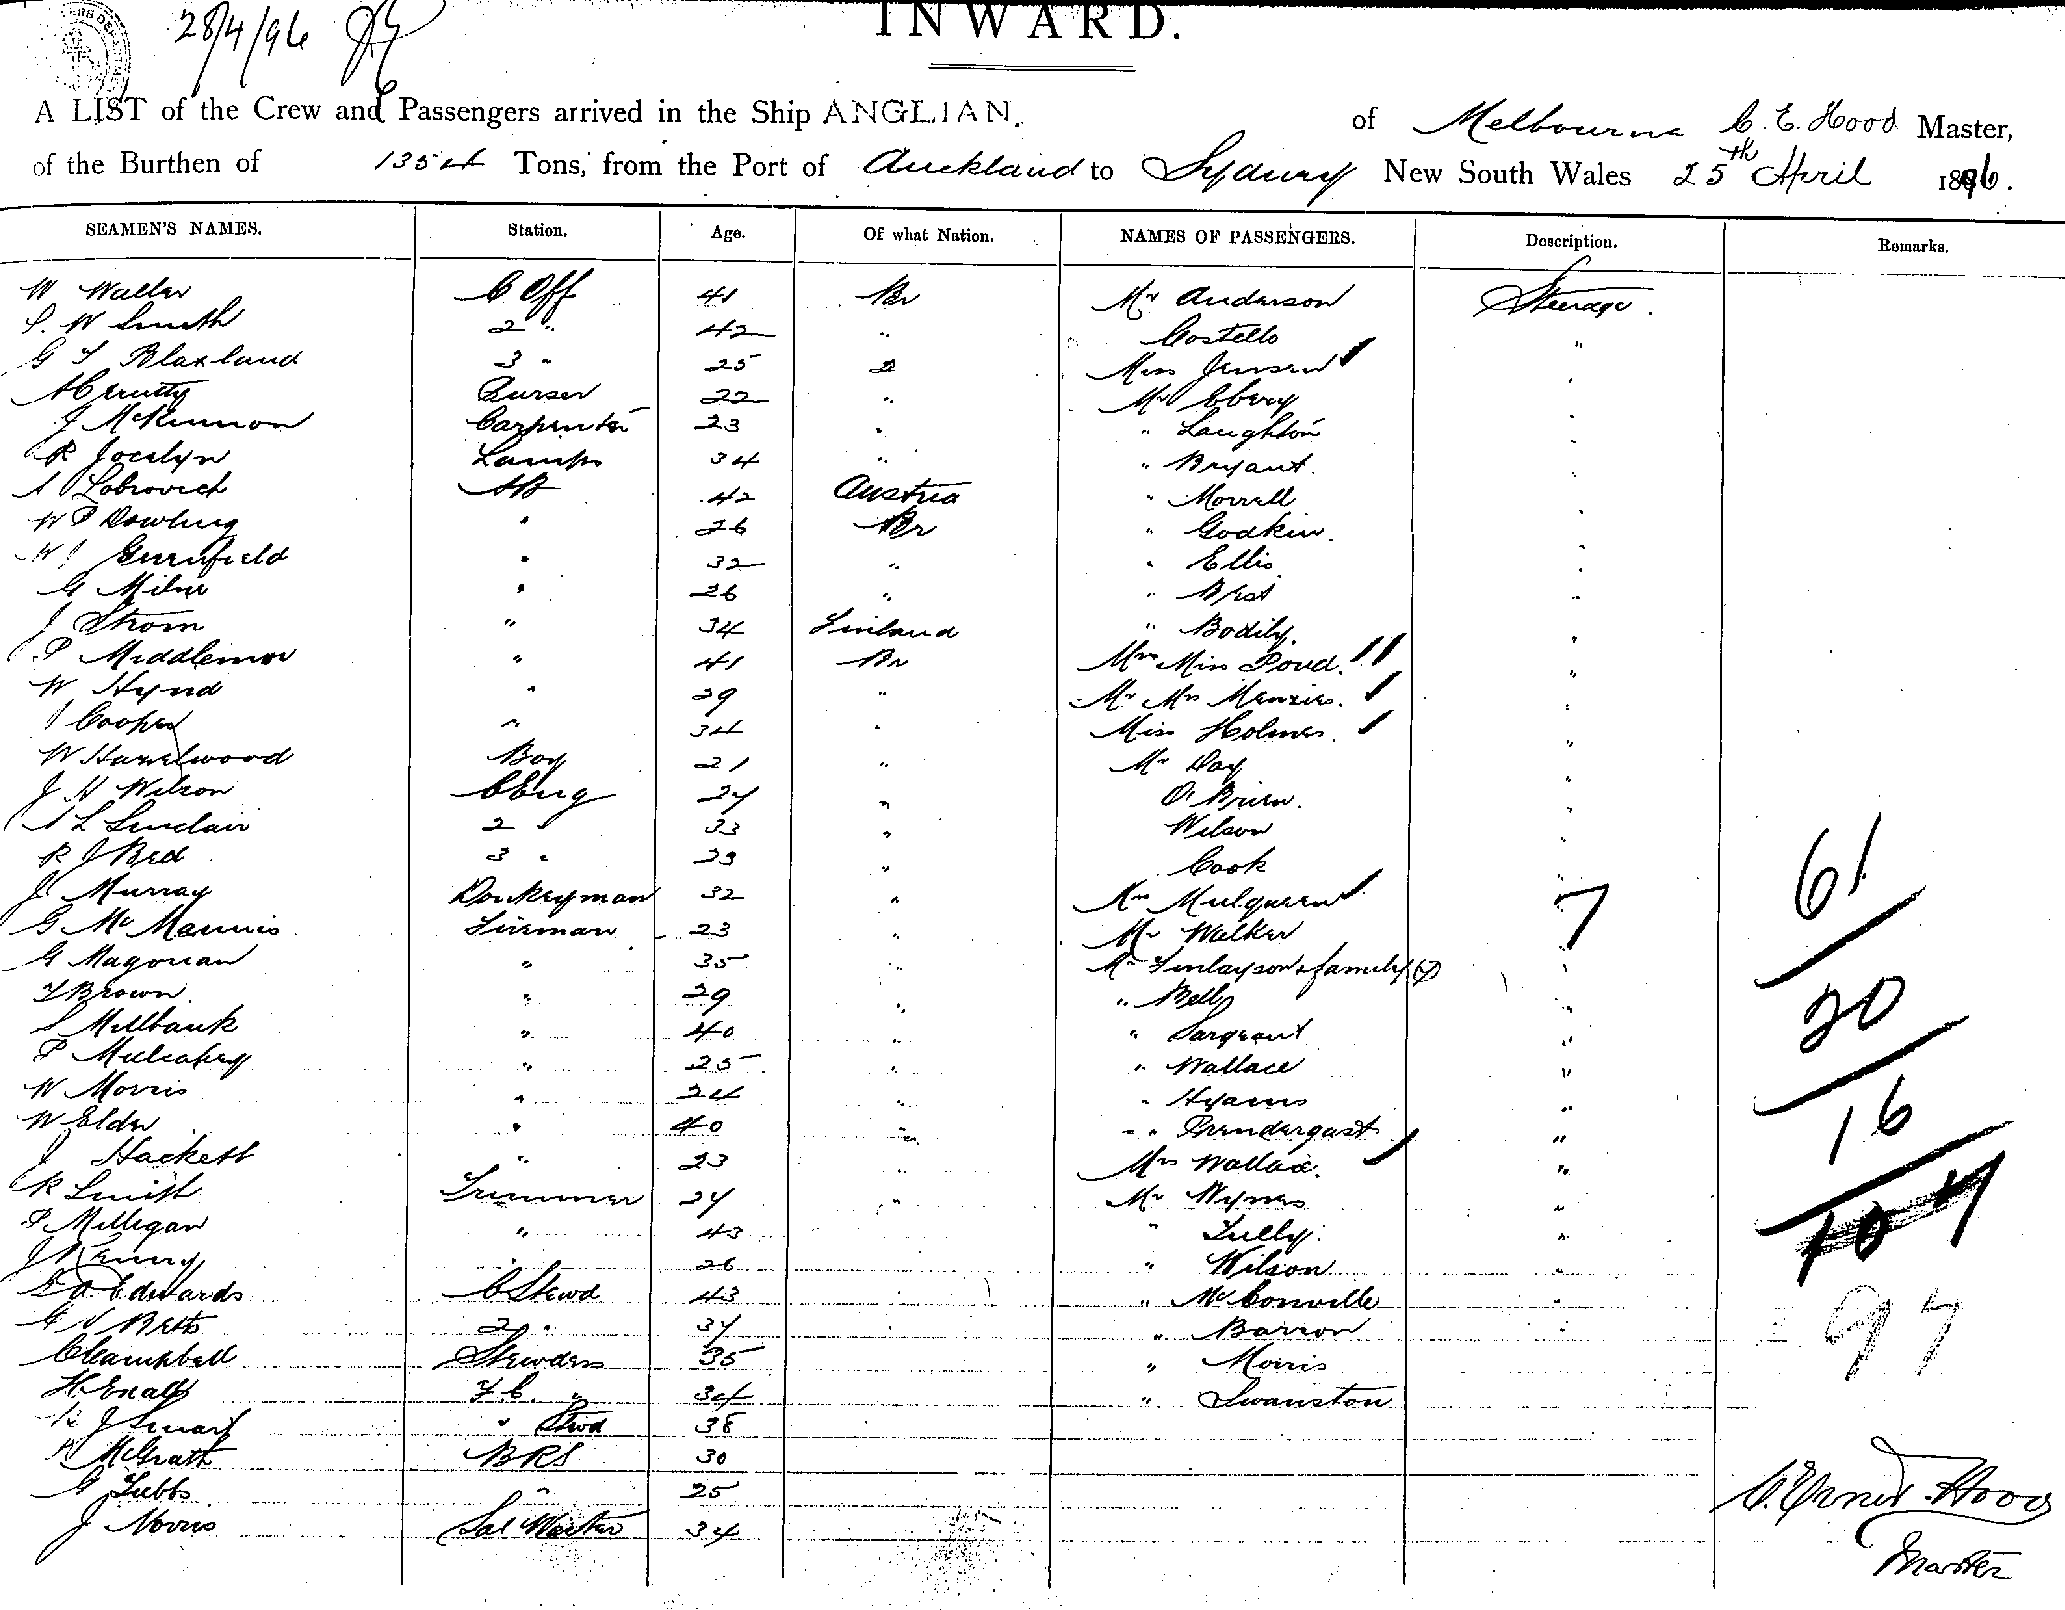 28/4/96
INWARD.
A LIST of the Crew and Passengers arrived in the Ship ANGLIAN. of Melbourne C. E. Hood Master,
of the Burthen of 1354 Tons, from the Port of Auckland to Sydney New South Wales 25th April 1896.
SEAMEN'S NAMES. Station. Age. Of what Nation. NAMES OF PASSENGERS. Description. Remarks.
W Waller C Off 41 Br Mr Anderson Steerage.
S. W Smith 2 " 42 " Costello "
G T Blaxland 3 " 25 " Miss Jensen "
A Crutty Purser 22 " Mr Ebery "
J McKinnon Carpenter 23 " " Laughton "
R Jocelyn Lamps 34 " " Bryant "
A Lobrovich AB 42 Austria " Morrell "
W P Dowling " 26 Br " Godkin. "
W J Greenfield " 32 " " Ellis "
G Milne " 26 " " "
J Strom " 34 Finland " Bodily. "
P Middlemor " 41 Br Mrs Miss Poud. "
W Hynd " 29 " Mr Mrs Menzies. "
Cooper " 34 " Miss Holmes. "
W Hazelwood Boy 21 " Mr Day "
J H Wilson C Eng 27 " O'Brien. "
A L Sinclair 2 " 33 " Wilson "
R J Reid 3 " 29 " Cook "
J Murray Donkeyman 32 " Mrs Mulqueen 7 61
G McMannis Fireman 23 " Mr Walker "
G Magorian " 35 " Mr Finlayson & family (7) "
T Brown " 29 " " Bell " 20
S Millbank " 40 " " Sargeant "
P Mulcahey " 25 " " Wallace "
W Morris " 24 " " Hyams " 16
W Elder " 40 " " Prendergast "
J Hackett " 23 " Mrs Wallace. "
R Smith Trimmer 27 " Mr Wynes " 107
P Milligan " 43 " Tully. "
J Kenny 26 " Wilson "
Edwards C Stewd 43 " McConville " 97
G V Betts 2 " 37 " Barron "
C Campbell Stewdess 35 " Morris
H Enalls F.C. " 34 " Swanston
R J Smart " Stwd 38
A McGrath BRS 30
G Tubbs " 25 C. Ernest Hood
J Norris Sal Waiter 34 Master